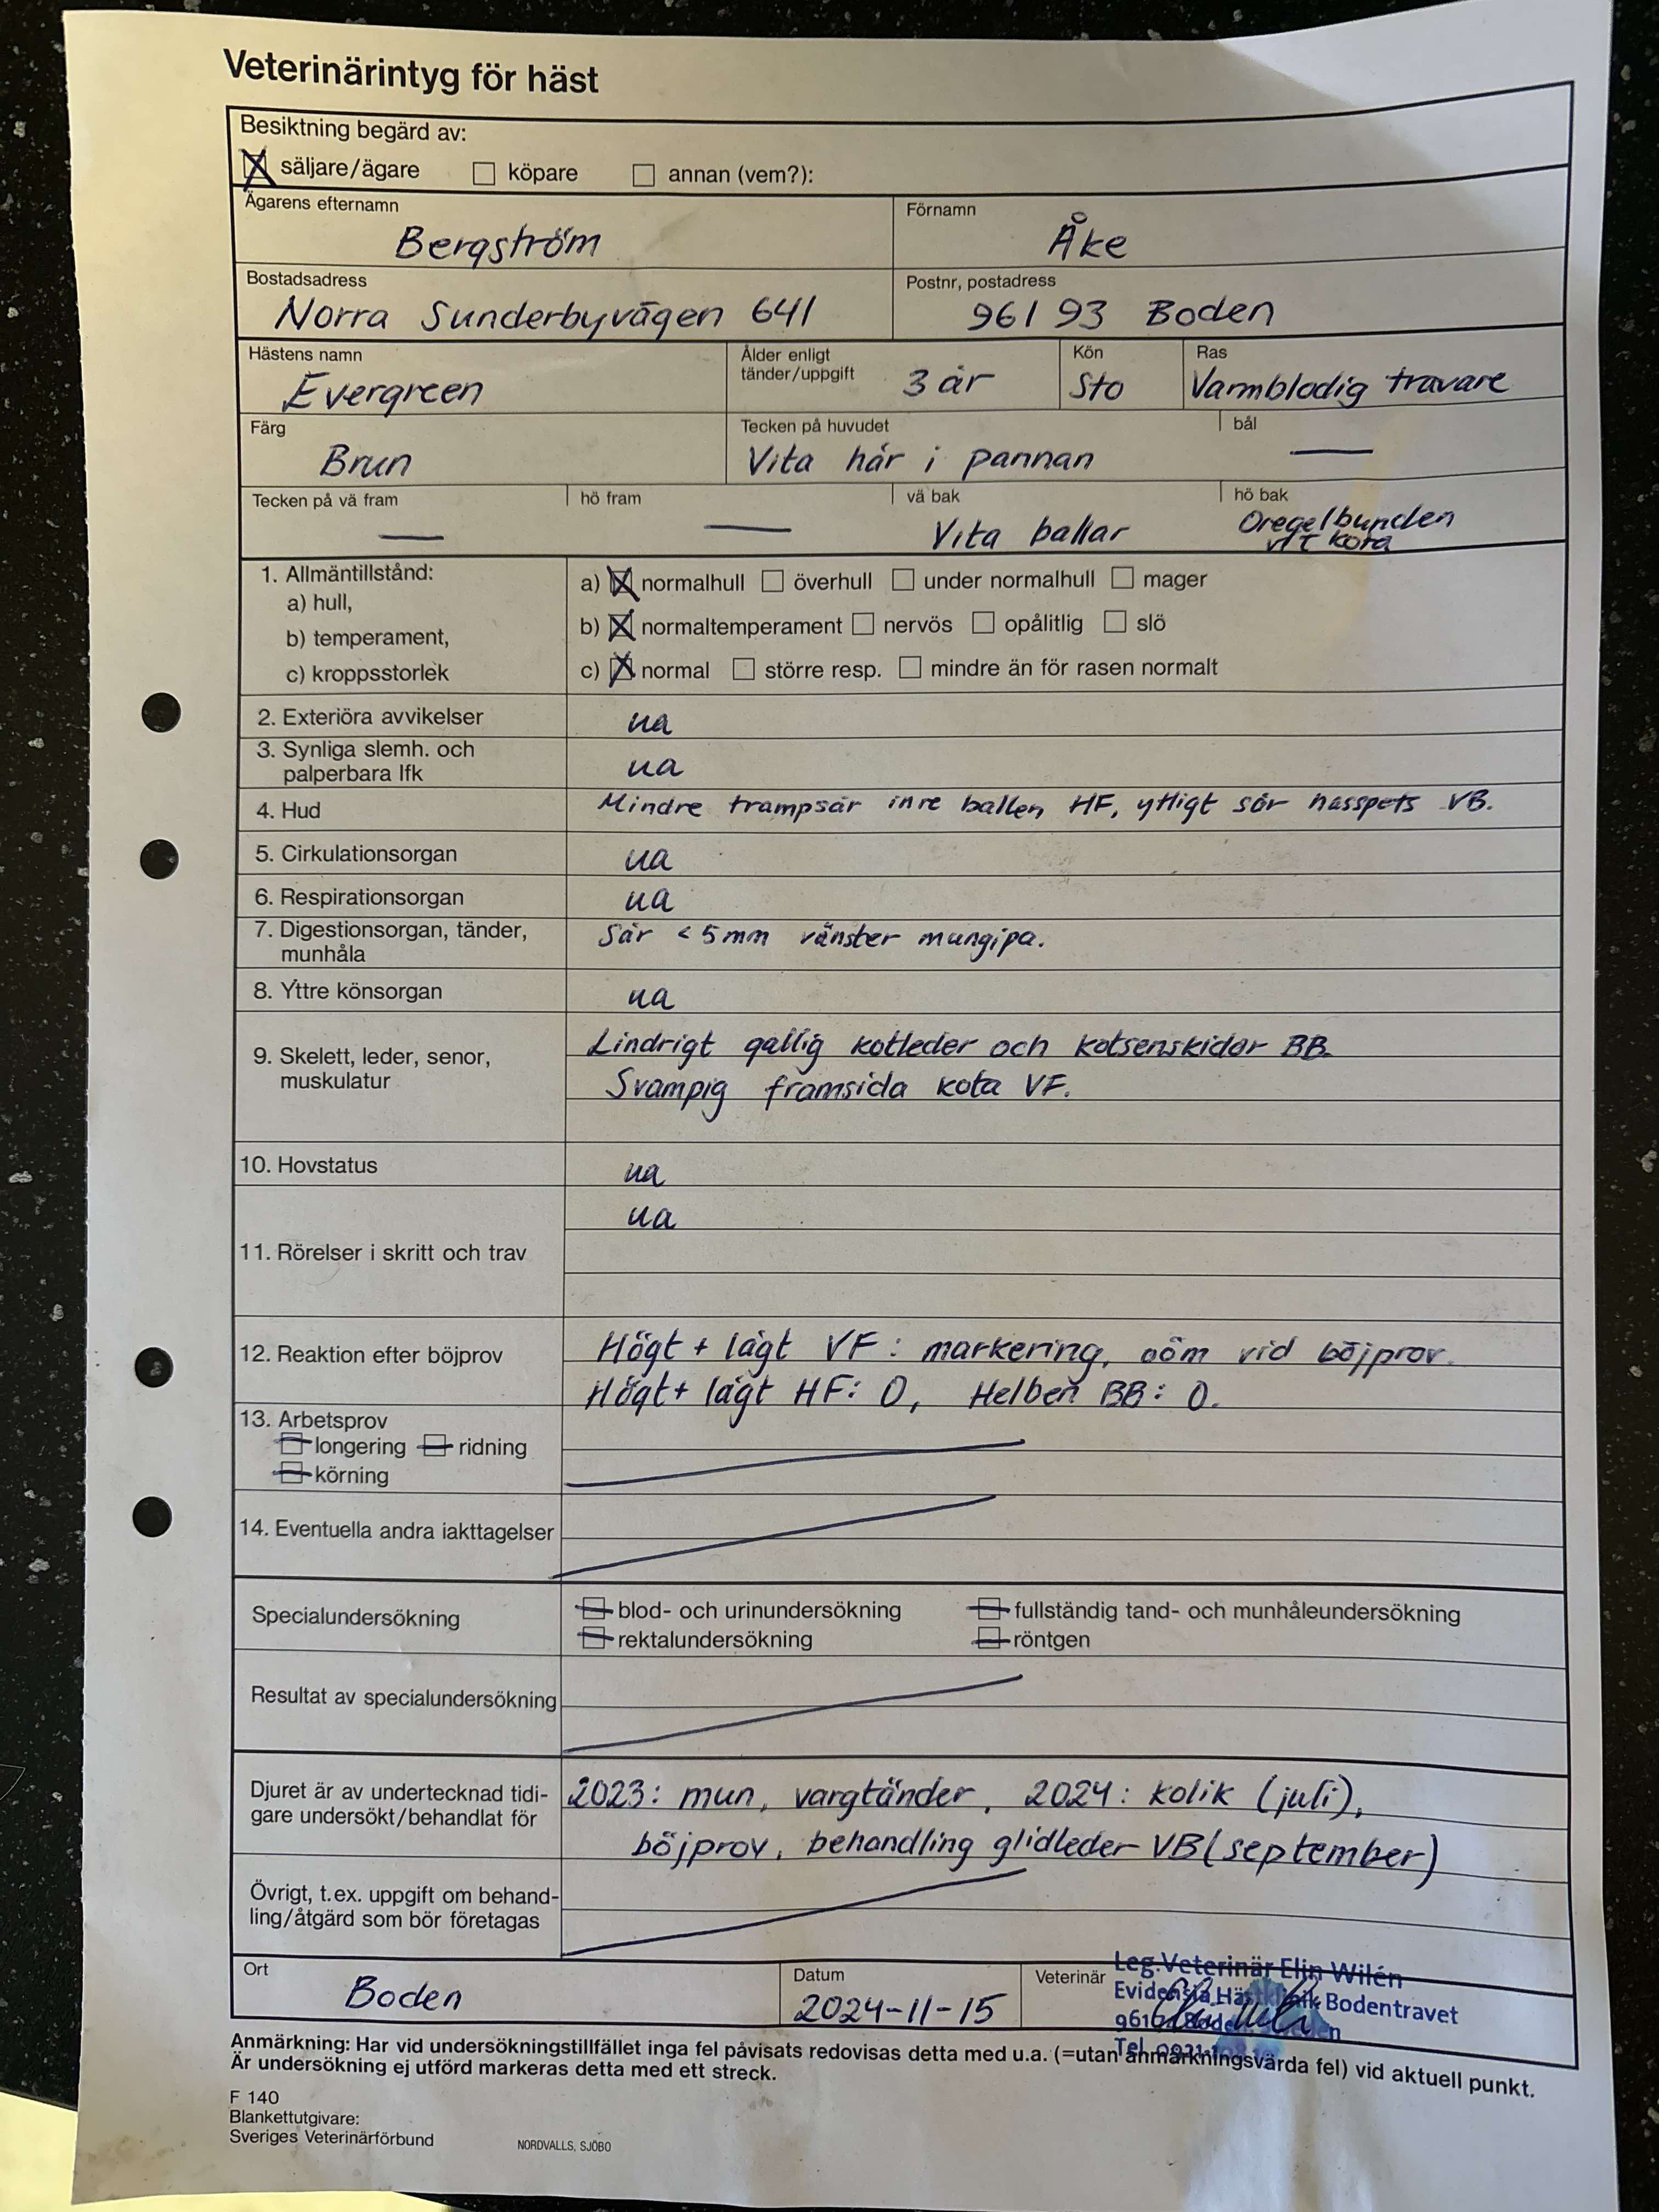 Veterinärintyg för häst
Besiktning begärd av:
säljare/ägare köpare annan (vem?):
Ägarens efternamn Förnamn
Bergström Åke
Bostadsadress Postnr, postadress
Norra Sunderbyvägen 641 961 93 Boden
Hästens namn Ålder enligt tänder/uppgift Kön Ras
Evergreen 3 år Sto Varmblodig travare
Färg Tecken på huvudet bål
Brun Vita hår i pannan —
Tecken på vä fram hö fram vä bak hö bak
— — Vita ballar Oregelbunden
vit kota
1. Allmäntillstånd: a) normalhull överhull under normalhull mager
a) hull,
b) temperament, b) normaltemperament nervös opålitlig slö
c) kroppsstorlek c) normal större resp. mindre än för rasen normalt
2. Exteriöra avvikelser ua
3. Synliga slemh. och
palperbara lfk ua
4. Hud Mindre trampsår inre ballen HF, ytligt sår hasspets VB.
5. Cirkulationsorgan ua
6. Respirationsorgan ua
7. Digestionsorgan, tänder, Sår < 5 mm vänster mungipa.
munhåla
8. Yttre könsorgan ua
Lindrigt gallig kotleder och kotsenskidor BB.
9. Skelett, leder, senor,
muskulatur Svampig framsida kota VF.
10. Hovstatus ua
ua
11. Rörelser i skritt och trav
12. Reaktion efter böjprov Högt + lågt VF: markering, öm vid böjprov.
Högt + lågt HF: 0, Helben BB: 0.
13. Arbetsprov
longering ridning
körning
14. Eventuella andra iakttagelser
Specialundersökning blod- och urinundersökning fullständig tand- och munhåleundersökning
rektalundersökning röntgen
Resultat av specialundersökning
Djuret är av undertecknad tidi- 2023: mun, vargtänder, 2024: kolik (juli),
gare undersökt/behandlat för böjprov, behandling glidleder VB (september)
Övrigt, t.ex. uppgift om behand-
ling/åtgärd som bör företagas
Ort Datum Veterinär Leg. Veterinär Elin Wilén
Boden 2024-11-15 Evidensia Hästklinik Bodentravet
Tel
Anmärkning: Har vid undersökningstillfället inga fel påvisats redovisas detta med u.a. (=utan anmärkningsvärda fel) vid aktuell punkt.
Är undersökning ej utförd markeras detta med ett streck.
F 140
Blankettutgivare:
Sveriges Veterinärförbund NORDVALLS, SJÖBO